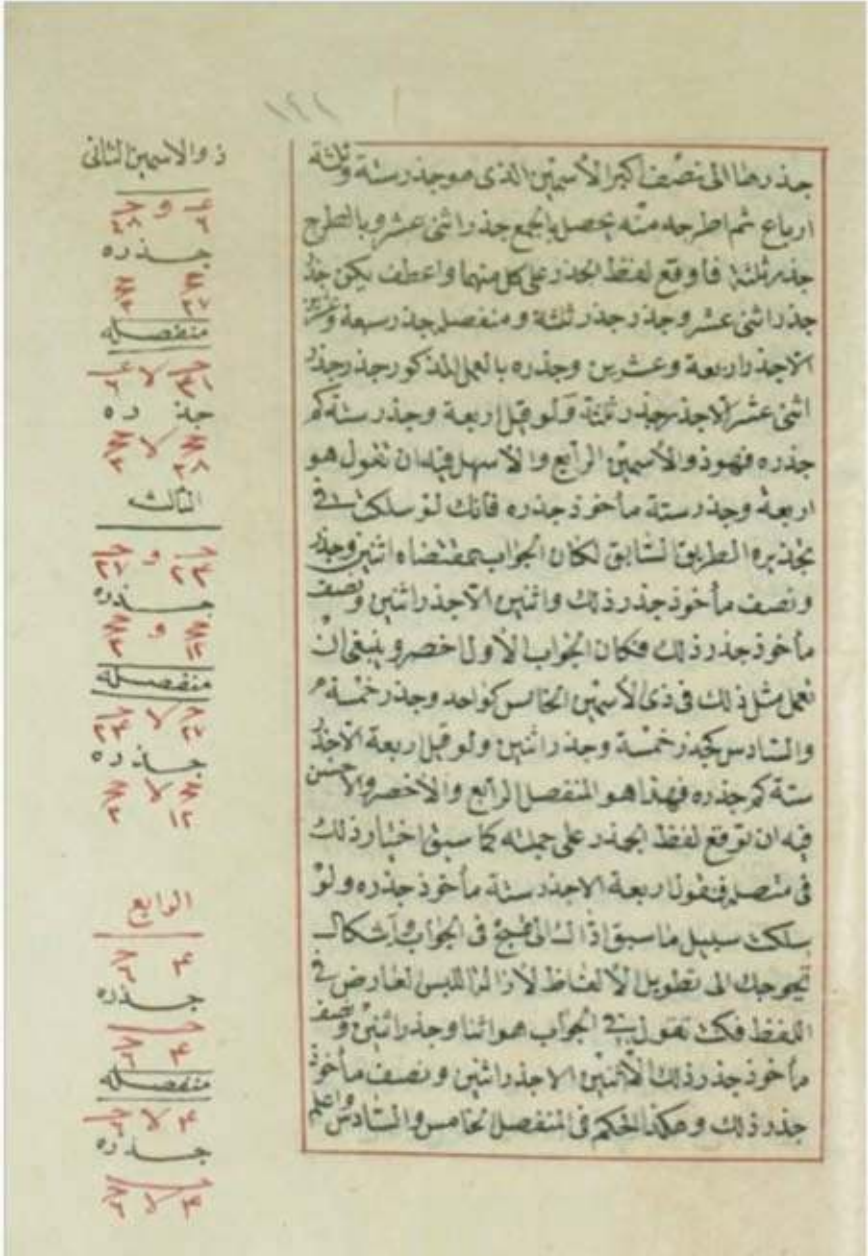 ١٢٢
جذرها الى نصف اكبر الاسمين الذى هو جذر ستة وثلثة
ارباع ثم اطرحه منه يحصل بالجمع جذر اثنى عشر وبالطرح
جذر ثلثة فاوقع لفظ الجذر على كل منهما واعطف يكن جذر
جذر اثنى عشر وجذر جذر ثلثة ومنفصله جذر سبعة وعشرين
الا جذر اربعة وعشرين وجذره بالعمل المذكور جذر جذر
اثنى عشر الا جذر جذر ثلثة ولو قيل اربعة وجذر ستة كم
جذره فهو ذو الاسمين الرابع والاسهل فيه ان تقول هو
اربعة وجذر ستة مأخوذ جذره فانك لو سلكت فى
تجذيره الطريق السابق لكان الجواب بمقتضاه اثنين وجذر
ونصف مأخوذ جذر ذلك واثنين الا جذر اثنين ونصف
مأخوذ جذر ذلك فكان الجواب الاول اخصر وينبغى ان
تعمل مثل ذلك فى ذى الاسمين الخامس كواحد وجذر خمسة
والسادس كجذر خمسة وجذر اثنين ولو قيل اربعة الا جذر
ستة كم جذره فهذا هو المنفصل الرابع والاخصر والاحسن
فيه ان توقع لفظ الجذر على جملته كما سبق اختيار ذلك
فى متصله فتقول اربعة الا جذر ستة مأخوذ جذره ولو
سلكت سبيل ما سبق فى الجواب اشكال
تحوجك الى تطويل الالفاظ لازالة اللبس لعارض فى
اللفظ فكنت تقول فى الجواب هو اثنا وجذر اثنين ونصف
مأخوذ جذر ذلك الا اثنين الا جذر اثنين ونصف مأخوذ
جذر ذلك وهكذا الحكم فى المنفصل الخامس والسادس واعلم
ذو الاسمين الثانى
و
جذره
منفصله
لا
جذره
لا
الثالث
و
جذره
و
منفصله
لا
جذره
لا
الرابع
جذره
منفصله
لا
جذره
لا